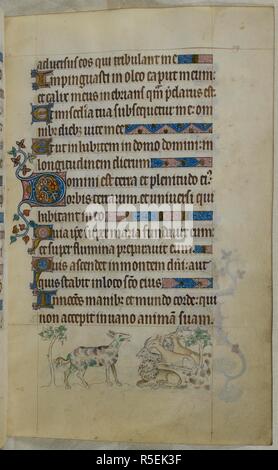 aduersus eos qui tribulant me
Inpinguasti in oleo caput meum:
et calix meus inebrians qm p̄clarus est
Et mīa tua subsequetur me: om
nib; dieb; uite mee
Et ut inhabitem in domo domini: in
longitudinem dierum
Domini est terra et plenitudo ei⁹:
orbis terrarum, et uniuersi qui
habitant in eo
Quia ipse super maria fundauit eum:
et super flumina preparauit eum
Quis ascendet in montem dn̄i: aut
quis stabit in loco sc̄o eius
Innocens manib; et mundo corde: qui
non accepit in uano animam suam.
alamy
Image ID: R5EK3F
www.alamy.com